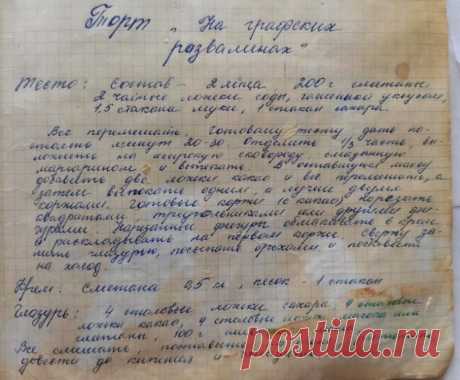 Торт „На графских
развалинах"
Тесто: Состав – 2 яйца 200 г сметаны
2 чайные ложки соды, гашеной уксусом,
1,5 стакана муки, 1 стакан сахара.
Все перемешать, готовому тесту дать по-
стоять минут 20-30. Отделить 1/3 часть, вы-
ложить на широкую сковороду смазанную
маргарином и выпекать. В оставшуюся массу
добавить две ложки какао и все промешать, а
затем выпекать одним, а лучше двумя
коржами. Готовые коржи (с какао) нарезать
квадратами, треугольниками или другими фи-
гурами. Нарезанные фигуры обмакивать в крем
и раскладывать на первом корже. Сверху за-
лить глазурью, посыпать орехами и поставить
на холод.
Крем: Сметана 0,5 л, песок - 1 стакан
Глазурь: 4 столовые ложки сахара, 4 столовые
ложки какао, 4 столовые ложки молока или
сметаны, 100 г
Все смешать, поставить
довести до кипения и
postila.ru